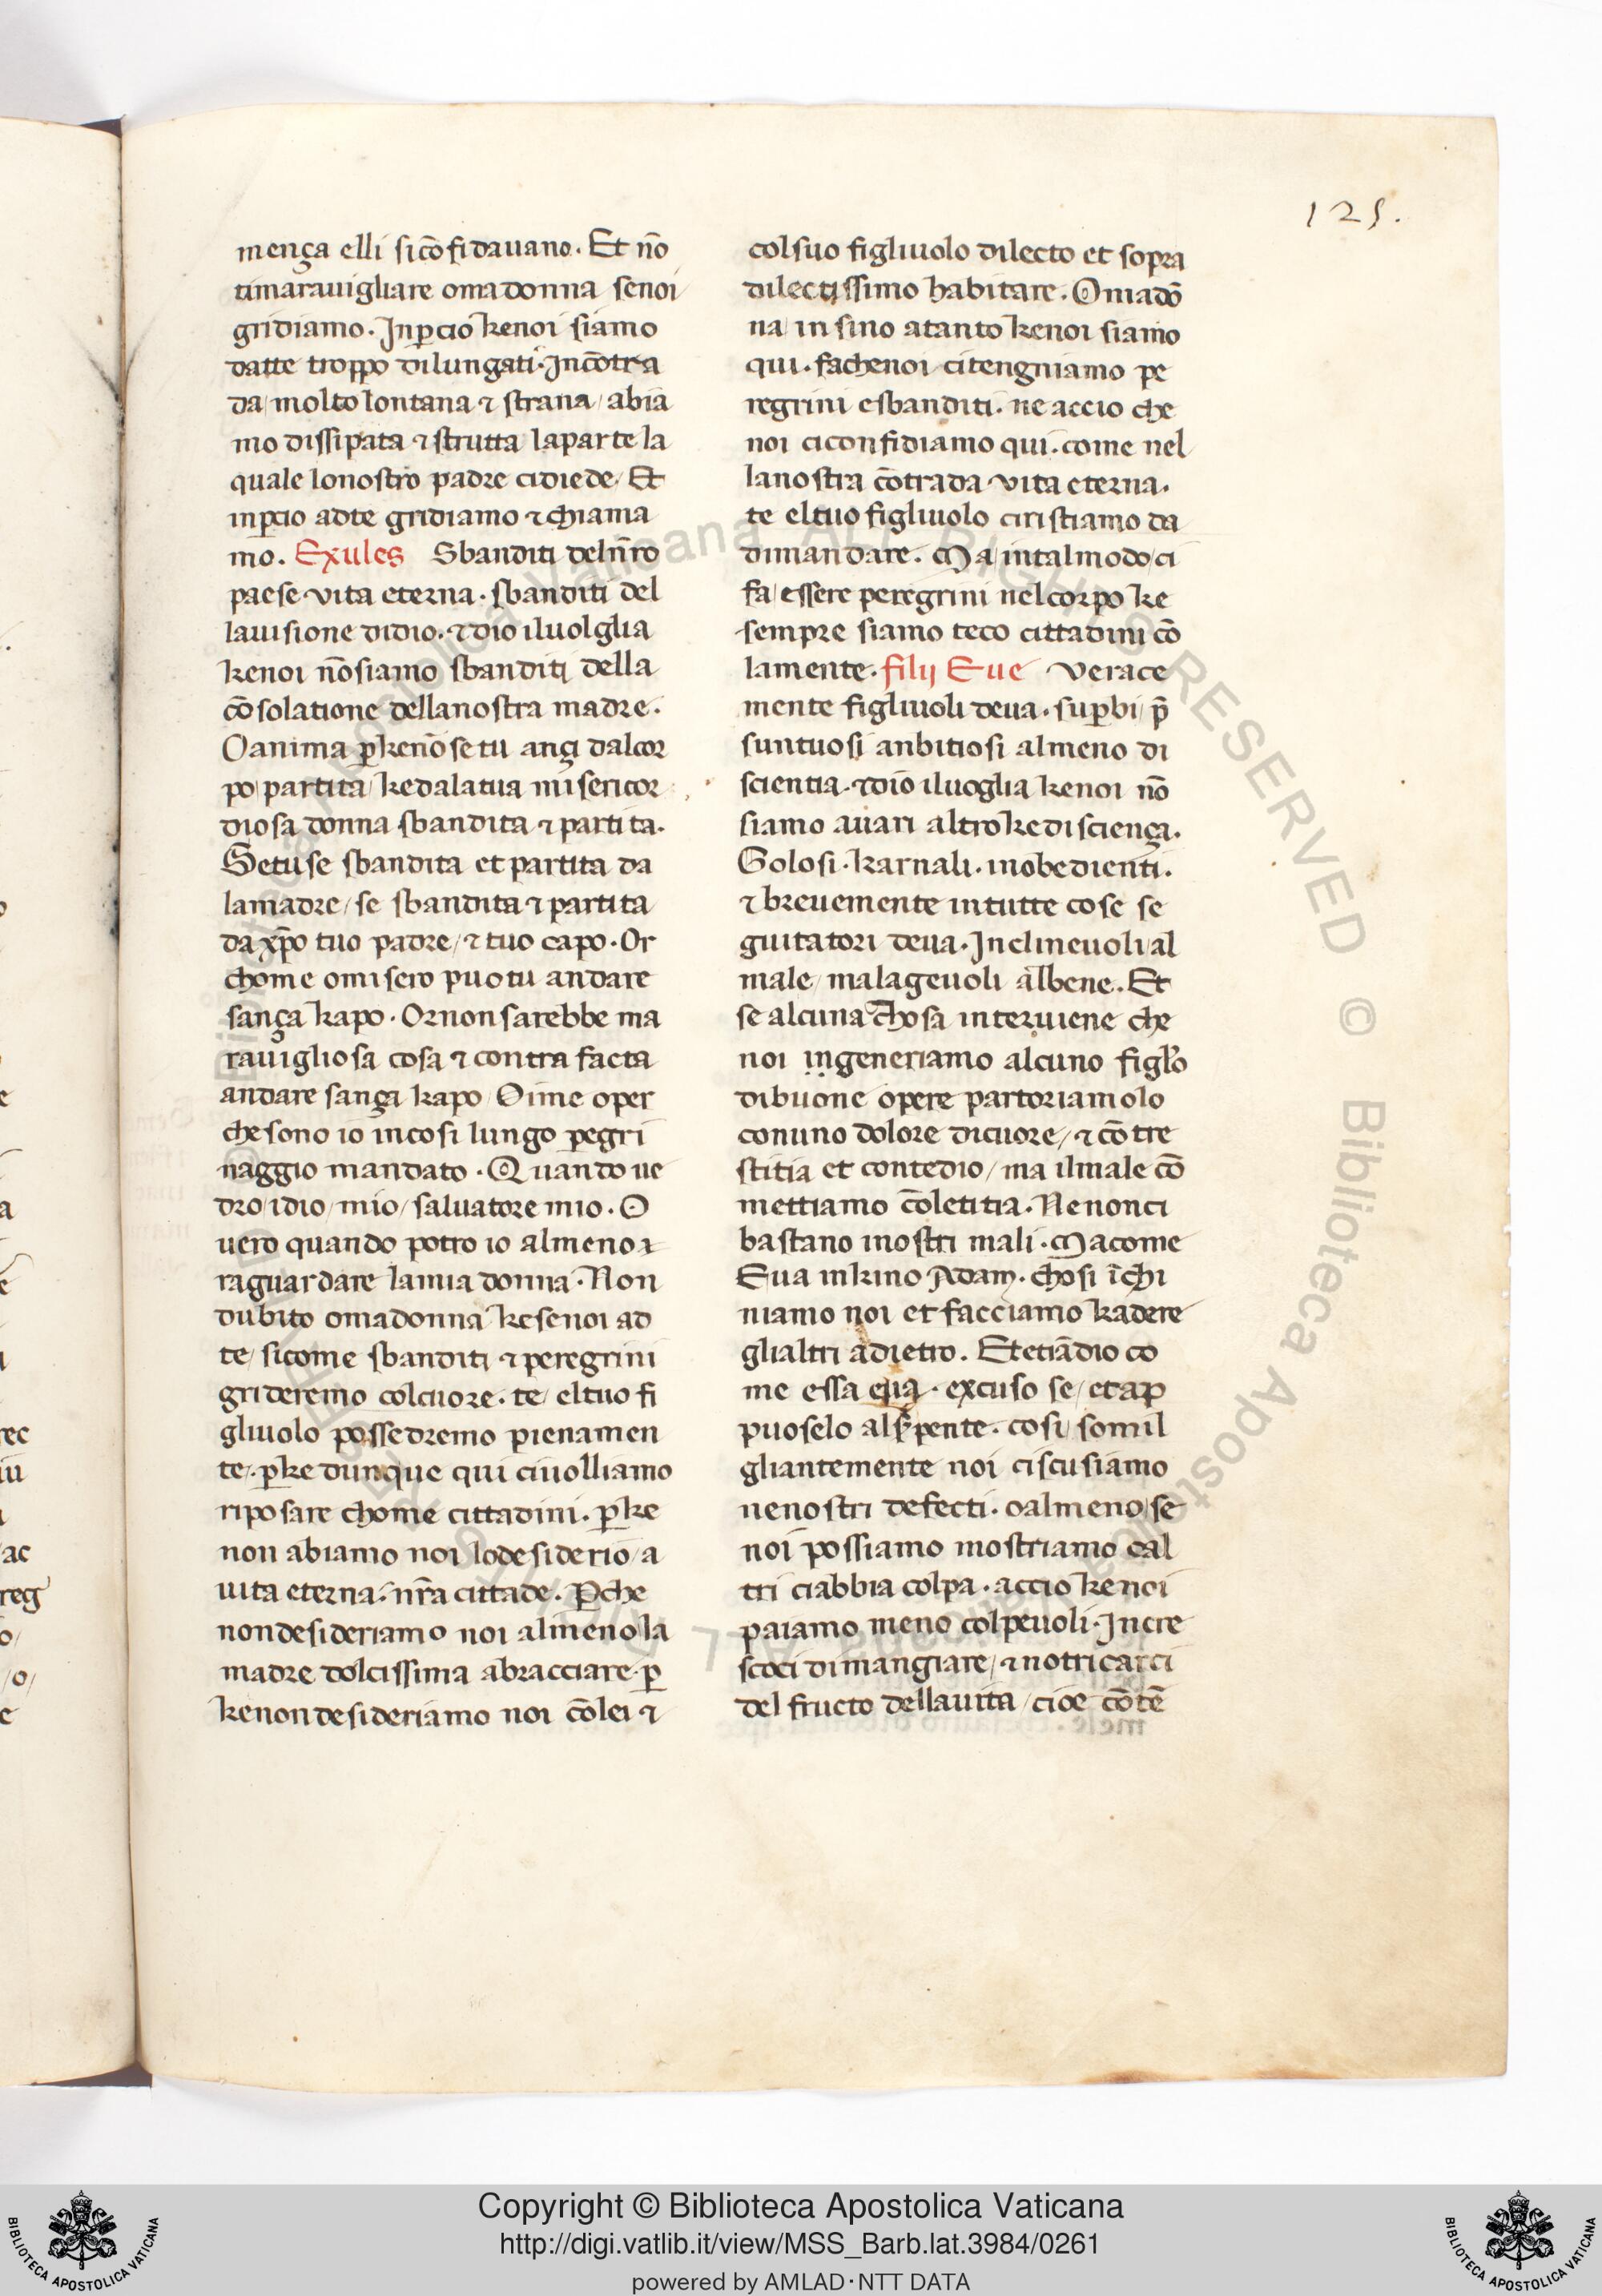 125.
mença elli sicõfidauano. Et nõ
timarauigliare omadonna senoi
gridiamo. Inꝑcio kenoi siamo
datte troppo dilungati. Incõtra
da molto lontana ⁊ strana abia
mo dissipata ⁊ strutta laparte la
quale lonostro padre cidiede. Et
inꝑcio adte gridiamo ⁊ chiama
mo. Exules Sbanditi delnr̃o
paese vita eterna. sbanditi del
lauisione didio. ⁊ dio iluolglia
kenoi nõsiamo sbanditi della
cõsolatione dellanostra madre.
O anima ꝑkenõ setu ançi dalcor
po partita kedalatua misericor
diosa donna sbandita ⁊ partita.
Setuse sbandita et partita da
lamadre / se sbandita ⁊ partita
da xp̃o tuo padre / ⁊ tuo capo. Or
chome omisero puotu andare
sança kapo. Ornonsarebbe ma
rauigliosa cosa ⁊ contra facta
andare sança kapo Oime oper
chesono io incosi lungo ꝑegri
naggio mandato. Quando ue
dro / idio / mio / saluatore mio. O
uero quando potro io almeno
raguardare lamia donna. Non
dubito omadonna kesenoi ad
te / sicome sbanditi ⁊ peregrini
grideremo colcuore. te / eltuo fi
gliuolo possedremo pienamen
te. ꝑke dunque qui ciuolliamo
riposare chome cittadini. ꝑke
non abiamo noi lodesiderio / a
uita eterna. nr̃a cittade. Ꝑche
nondesideriamo noi almeno la
madre dolcissima abracciare. ꝑ
kenondesideriamo noi cõlei ⁊
colsuo figliuolo dilecto et sopra
dilectissimo habitare. O madõ
na in sino atanto kenoi siamo
qui. fachenoi citengniamo pe
regrini esbanditi. ne accio che
noi ciconfidiamo qui. come nel
lanostra cõtrada vita eterna.
te eltuo figliuolo ciristiamo da
dimandare. Ma intalmodo ci
fa essere peregrini nelcorpo ke
sempre siamo teco cittadini cõ
lamente. filij Eue Verace
mente figliuoli deua. suꝑbi p̃
suntuosi anbitiosi almeno di
scientia. ⁊ dio iluoglia kenoi nõ
siamo auari altro kedisciença.
Golosi. karnali. inobedienti.
⁊ breuemente intutte cose se
guitatori deua. Inclineuoli al
male / malageuoli albene. Et
se alcuna chosa interuiene che
noi ingeneriamo alcuno figl̃o
dibuone opere partoriamolo
conuno dolore dicuore / ⁊ cõ tre
stitia et contedio / ma ilmale cõ
mettiamo cõletitia. Nenonci
bastano inostri mali. Ma come
Eua inkino Adam. chosi ĩchi
niamo noi et facciamo kadere
glialtri adietro. Et etiãdio co
me essa eua. excuso se / et ap
puoselo alsꝑpente. cosi somil
gliantemente noi ciscusiamo
nenostri defecti. oalmeno se
noi possiamo mostriamo cal
tri ciabbia colpa. accio kenoi
paiamo meno colpeuoli. Incre
scoci dimangiare / ⁊ notricarci
del fructo dellauita / cioe cõtẽ
Copyright © Biblioteca Apostolica Vaticana
http://digi.vatlib.it/view/MSS_Barb.lat.3984/0261
powered by AMLAD·NTT DATA
BIBLIOTECA APOSTOLICA VATICANA
BIBLIOTECA APOSTOLICA VATICANA